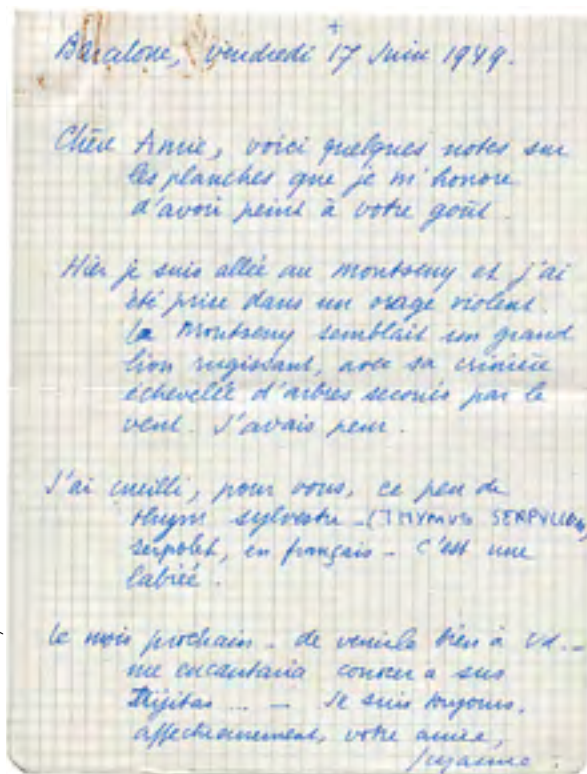 +
Barcalone, vendredi 17 Juin 1949.
Chère Annie, voici quelques notes sur
les planches que je m'honore
d'avoir peint à votre goût.
Hier je suis allée au Montseny et j'ai
été prise dans un orage violent.
le Montseny semblait un grand
lion rugissant, avec sa crinière
échevelée d'arbres secoués par le
vent. J'avais peur.
J'ai cueilli, pour vous, ce peu de
thym sylvestre - (THYMUS SERPYLLUM)
serpolet, en français - C'est une
labiée.
Le mois prochain - de venirle bien à Vd. -
me encantaria conocer a sus
hijitas ... - Je suis toujours,
affectueusement, votre amie,
Suzanne.